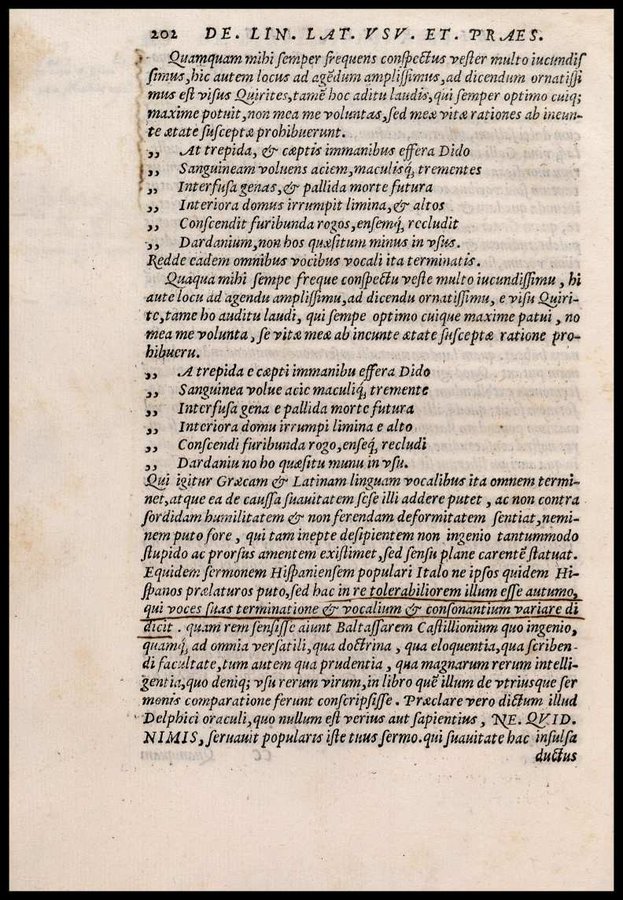 202 DE. LIN. LAT. VSV. ET. PRAES.
Quamquam mihi semper frequens conspectus vester multo iucundis
simus, hic autem locus ad agēdum amplissimus, ad dicendum ornatissi
mus est visus Quirites, tamē hoc aditu laudis, qui semper optimo cuiq;
maxime potuit, non mea me voluntas, sed meæ vitæ rationes ab incun-
te ætate susceptæ prohibuerunt.
„ At trepida, & cæptis immanibus effera Dido
„ Sanguineam voluens aciem, maculisq, trementes
„ Interfusa genas, & pallida morte futura
„ Interiora domus irrumpit limina, & altos
„ Conscendit furibunda rogos, ensemq, recludit
„ Dardanium, non hos quæsitum minus in vsus.
Redde eadem omnibus vocibus vocali ita terminatis.
Quaqua mihi sempe freque conspectu veste multo iucundissimu, hi
aute locu ad agendu amplissimu, ad dicendu ornatissimu, e visu Quiri-
te, tame ho auditu laudi, qui sempe optimo cuique maxime patui, no
mea me volunta, se vitæ meæ ab incunte ætate susceptæ ratione pro-
hibueru.
„ A trepida e cæpti immanibu effera Dido
„ Sanguinea volue acie maculiq, tremente
„ Interfusa gena e pallida morte futura
„ Interiora domu irrumpi limina e alto
„ Conscendi furibunda rogo, enseq, recludi
„ Dardaniu no ho quæsitu munu in vsu.
Qui igitur Græcam & Latinam linguam vocalibus ita omnem termi-
net, atque ea de caussa suauitatem sese illi addere putet, ac non contra
sordidam humilitatem & non ferendam deformitatem sentiat, nemi-
nem puto fore, qui tam inepte desipientem non ingenio tantummodo
stupido ac prorsus amentem existimet, sed sensu plane carentē statuat.
Equidem sermonem Hispaniensem populari Italo ne ipsos quidem Hi-
spanos prælaturos puto, sed hac in re tolerabiliorem illum esse autumo,
qui voces suas terminatione & vocalium & consonantium variare di
dicit. quam rem sensisse aiunt Baltassarem Castillionium quo ingenio,
quamq, ad omnia versatili, qua doctrina, qua eloquentia, qua scriben-
di facultate, tum autem qua prudentia, qua magnarum rerum intelli-
gentia, quo deniq; vsu rerum virum, in libro quē illum de vtriusque ser
monis comparatione ferunt conscripsisse. Præclare vero dictum illud
Delphici oraculi, quo nullum est verius aut sapientius, NE. QVID.
NIMIS, seruauit popularis iste tuus sermo. qui suauitate hac insulsa
ductus